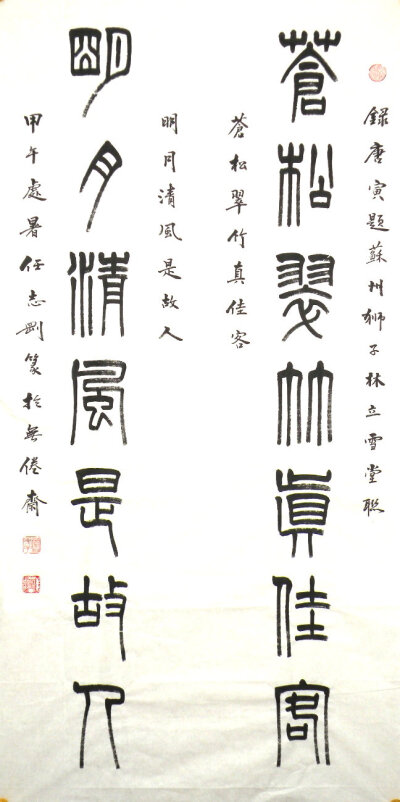 錄唐寅題蘇州獅子林立雪堂聯
蒼松翠竹真佳客
蒼松翠竹真佳客
明月清風是故人
明月清風是故人
甲午處暑任志剛篆於無倦齋